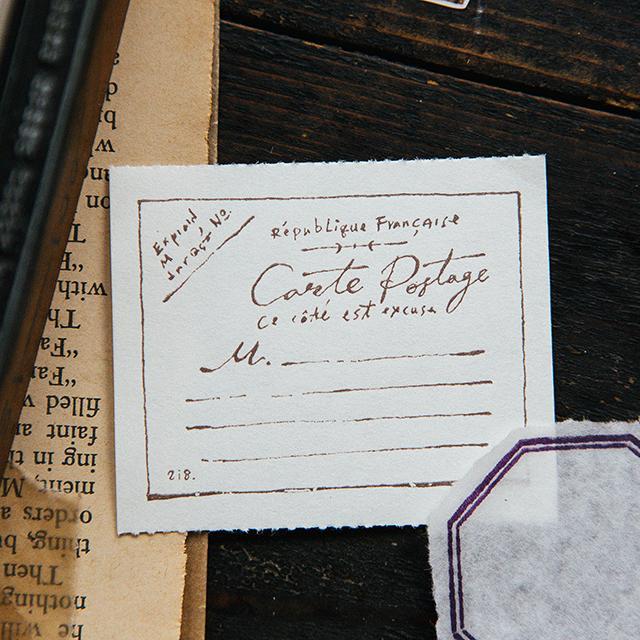 Expiond
M
République Française
Carte Postage
ce côté est excuse
M.
218.
on
T
"E
with
Th
"Fa
"Fa
filled w
faint a
ing in t
ment, M
orders a
thing, bu
Then
nothing
he will